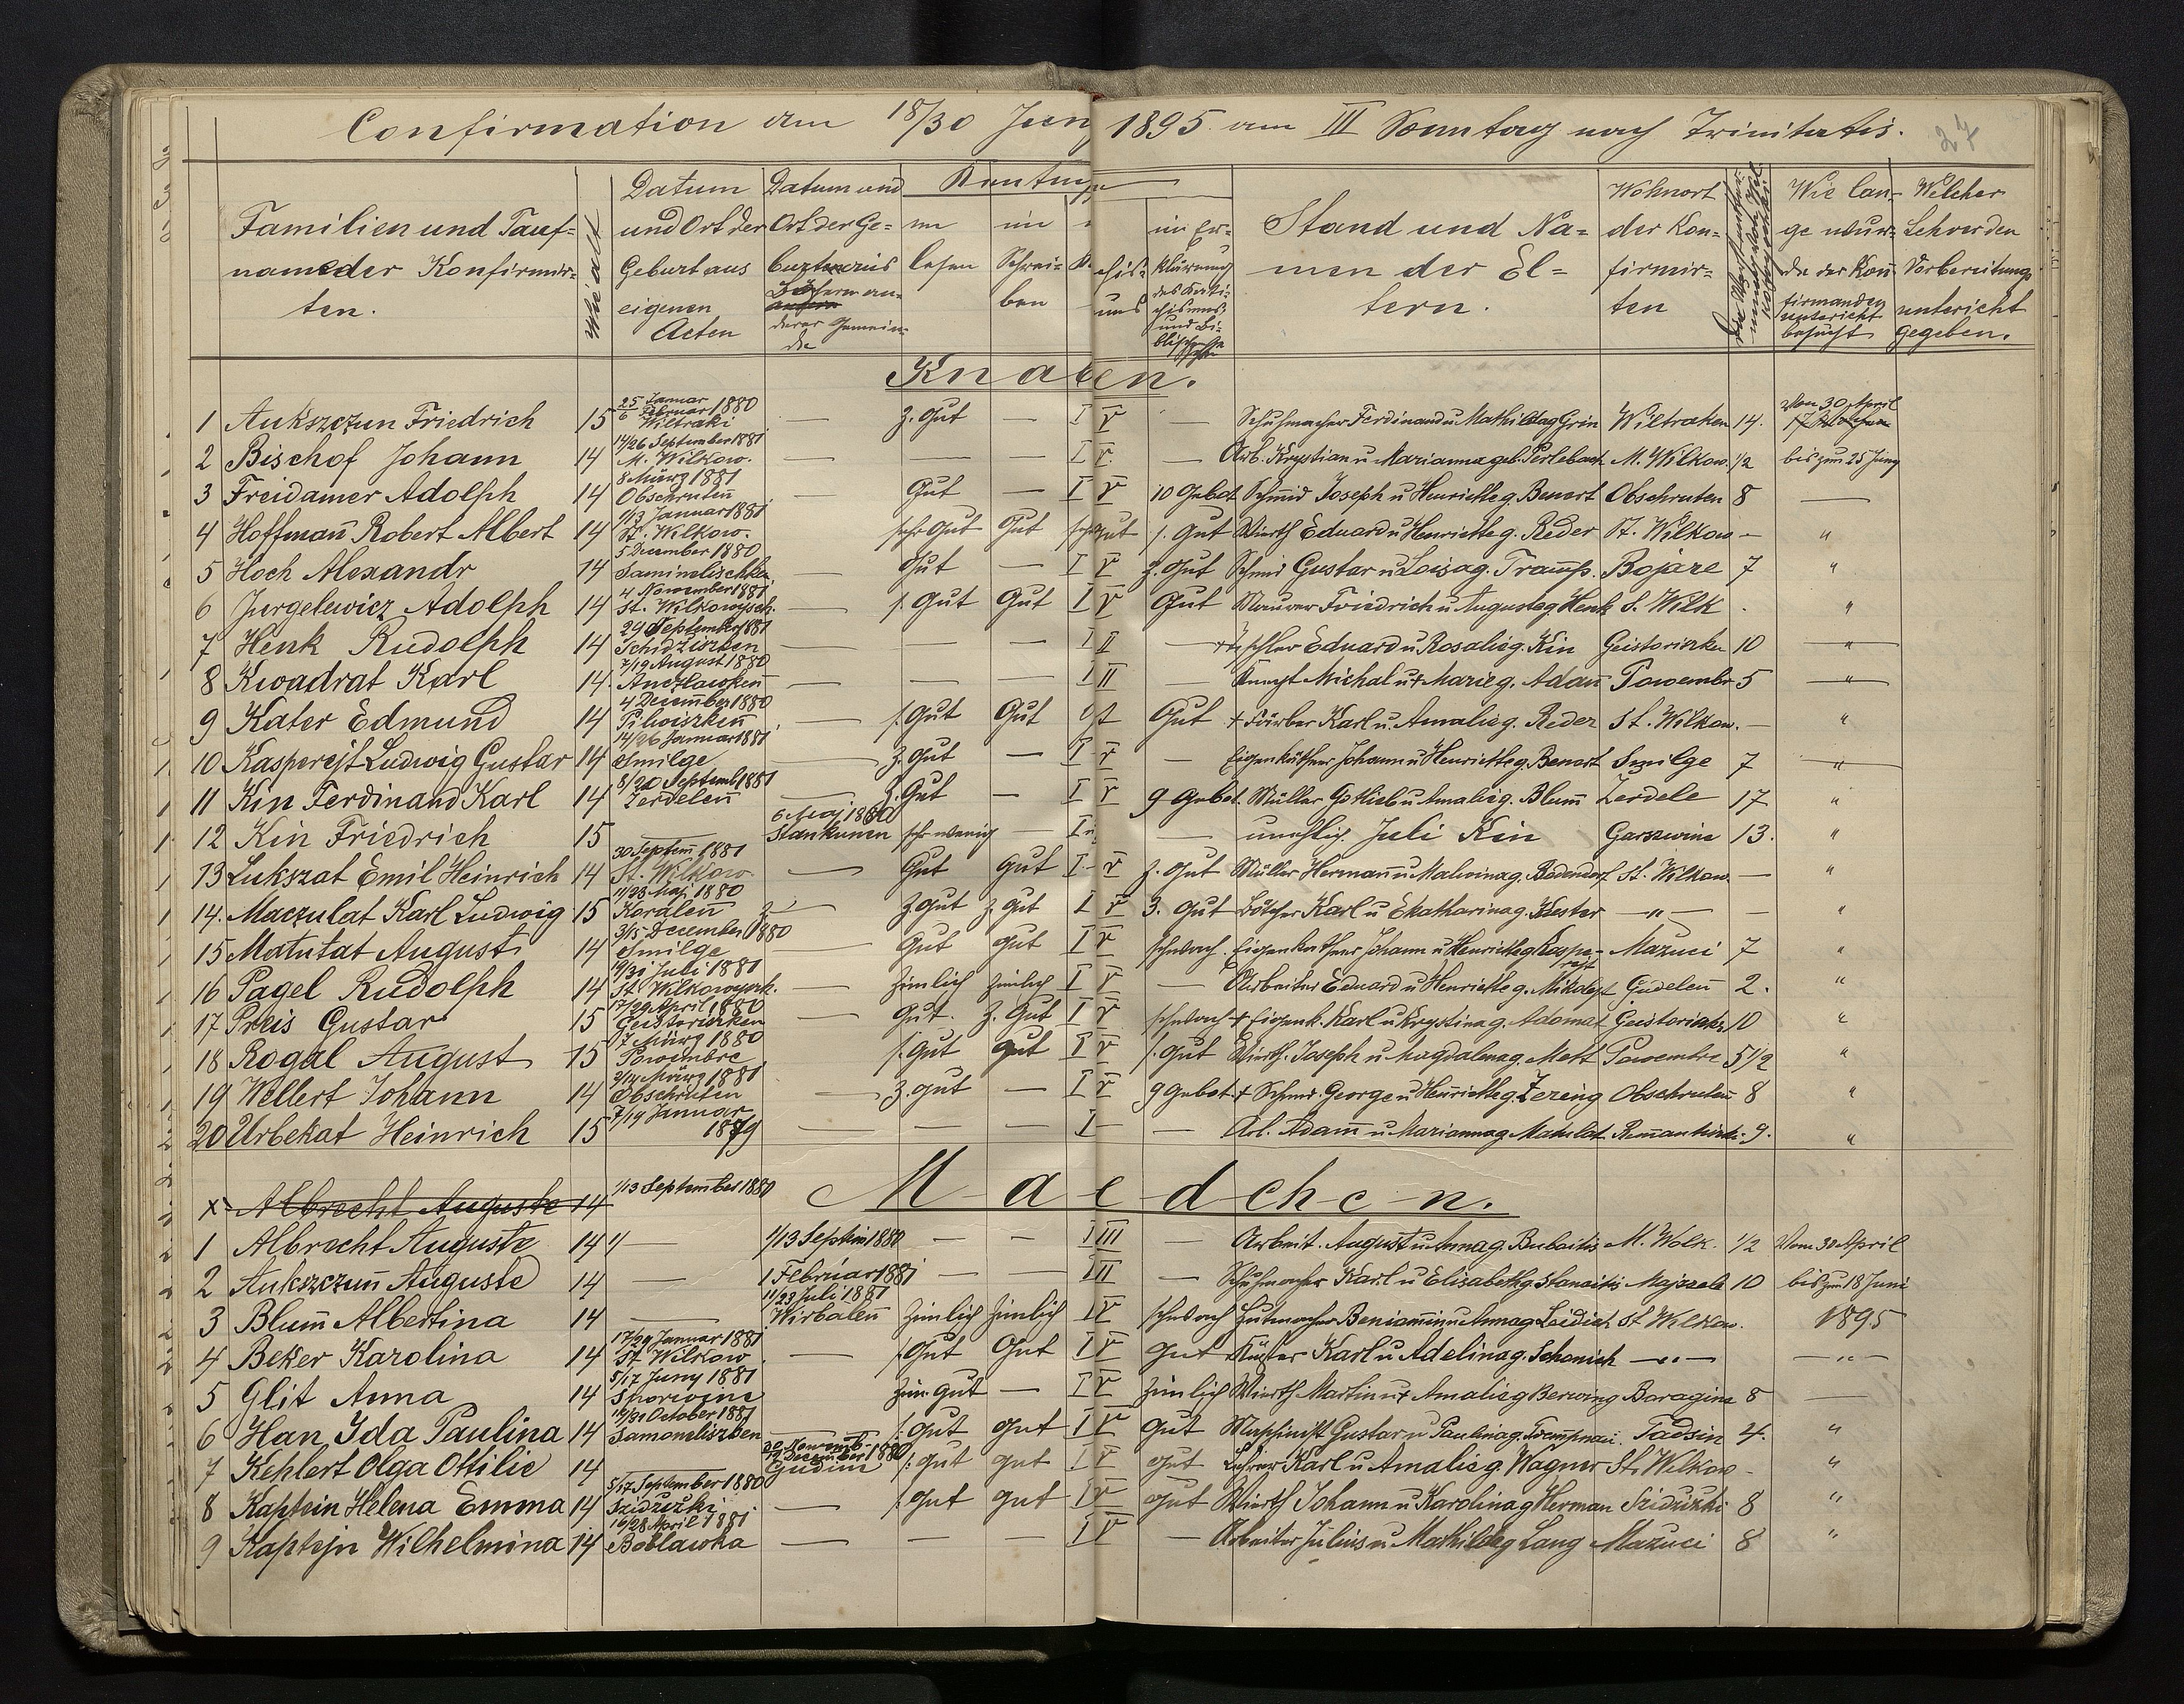 Confirmation am 18/30 Juny 1895. am III Sonntag nach Trinitatis.
27
Familien und Tauf=
name der Konfirmir=
ten.
Wie alt
Datum
und Ort der
Geburt aus
eigenen
Acten
Datum und
Ort der Ge=
burt aus
Büchern an=
derer Gemein=
de
im
lesen
im
Schrei=
ben
im Er=
klärung
des Kate=
chismus
und Bi=
Stand und Na=
men der El=
tern.
Wohnort
der Kon=
firmir=
ten
Wie lan=
ge wur=
de der Kon
firmanden
unterricht
besucht
Welcher
Lehrer den
Vorbereitungs
unterricht
gegeben.
Knaben.
1 Aukszczun Friedrich 15 25 Januar / 6 Februar 1880 Wiltraki — z. Gut — I V — Schuhmacher Ferdinand u Mathilda g Grin Wiltraken 14. Von 30 April
2 Bischof Johann 14 14/26 September 1881 M. Wilkow. — — — I V. — Arb. Krystian u Marianna geb. Perlebach M. Wilkow. 1/2 bis zum 25 Juny
3 Freidamer Adolph 14 8 März 1881 Obschruten — Gut — I V 10 Gebot Schmid Joseph u Henriette g. Benert Obschruten 8 —
4 Hoffmañ Robert Albert 14 1/13 Januar 1881 St. Wilkow. sehr Gut Gut sehr gut s. Gut Wirth Eduard u Henriette g. Reder St. Wilkow — "
5 Hoch Alexandr 14 5 December 1880 — Gut — I V z. Gut Schmid Gustav u Loisa g. Bojare 7 "
6 Jurgelewicz Adolph 14 4 November 1881 St. Wilkowysch. — s. Gut Gut I V Gut Maurer Friedrich u Auguste g Henk S. Wilk . "
7 Henk Rudolph 14 29 September 1881 — — — I II — Tischler Eduard u Rosalie g. Kin Geistoriszken 10 — " —
8 Kwadrat Karl 14. 7/19 August 1880 — — — I III Knecht Michal u + Marie g. Adam Powembr 5 — " —
9 Kater Edmund 14 4 December 1880 Pilwiszken — s. Gut Gut Gut + Färber Karl u. Amalie g. Reder St. Wilkow. — "
10 Kasperejt Ludwig Gustav 14 14/26 Januar 1881 Smilge — z. Gut — I V — Eigenkäthner Johann u Henriette g. Benert Smilge 7 — " —
11 Kin Ferdinand Karl 14 8/20 Septemb 1881 Zerdeleñ — z. Gut — I V 9 Gebot. Müller Gotlieb u Amalie g. Blum Zerdele 17 "
12 Kin Friedrich 15 — 6 Maj 1880 Stankunen sehr wenig — I — unehlig. Juli Kin Garszwine 13. "
13 Lukszat Emil Heinrich 14 30 Septem 1881 St. Wilkow — Gut Gut I V z. Gut Müller Herman u Malwina g. Badendorf St. Wilkow. — "
14. Maczulat Karl Ludwig 15 11/23 Maj 1880 Koraleñ z. Gut z. gut I V z. Gut Bötcher Karl u Ekatharina g. Kester — " — — "
15 Matutat August 14 3/15 December 1880 Smilge — Gut Gut I V schwach. Eigenkäthner Johann u Henriette g Kaspe=rejt Mazuci 7 "
16 Pagel Rudolph 14 19/31 Juli 1881 St. Wilkowysch. — zimlich zimlich I V — Arbeiter Eduard u Henriette g. Mikolejt Gudeleñ 2. "
17 Preis Gustav 15 17/29 April 1880 Geistoriszken — Gut. z. Gut I V schwach + Eigenk. Karl u Krystina g. Adomat Geistoriszk 10 "
18 Rogal August 15 17 März 1880 Powembre s. Gut gut I V s. Gut Wirth. Joseph u Magdalena g. Mett Powembre 5 1/2 "
19 Wellert Johann 14 2/14 März 1881 Obschruten — z. gut — I V 9 Gebot. + Schmid. George u Henriette g. Zering Obschruteñ 8 "
20 Urbekat Heinrich 15 7/19 Januar 1879 — — — I — — Arb. Adam u Marianna g Matulat 9. "
Maedchen.
x Albrecht Auguste 14 1/13 September 1880
1 Albrecht Auguste 14 " — 1/13 Septem 1880 — — I III — Arbeit. August u Anna g Bubaitis M. Wolk. 1/2 Vom 30 April
2 Aukszczuñ Auguste 14 — 1 Februar 1881 — — I II — Schuhmacher Karl u Elisabeth g Stanaitis Majszele 10 bis zum 18 Juni
3 Bluñ Albertina 14 — 11/23 Juli 1881 Wirbaleñ zimlich zimlich I V schwach Hutmacher Beniamin u Anna g Leidich St Wilkow. 1895
4 Beker Karolina 14 17/29 Januar 1881 St Wilkow — s. Gut Gut I V Gut Küster Karl u Adelina g. Schonich — " — — " —
5 Glit Anna 14 5/17 Juny 1881 zim. gut — I V zimlich Wirth Martin u + Amalie g Berwing Baragine 8 —
6 Han Ida Paulina 14 19/31 October 1881 Samoneliszken — s. gut gut I V Gut Maschinist Gustav u Paulina g. Tadsin 4. "
7 Kehlert Olga Ottilie 14 — 30 Novemb. / 12 December 1880 Gudine s. gut gut I V gut Lehrer Karl u Amalie g. Wagner St. Wilkow — "
8 Kaptein Helena Emma 14 5/17 September 1880 Szidziszki — s. gut gut I V gut Wirth Johann u Karolina g Herman Szidziszki 8 "
9 Kaptejn Wilhelmina 14 16/28 April 1881 Boblawka — — — I V — Arbeiter Julius u Mathilde g Lang Mazuci 8 "